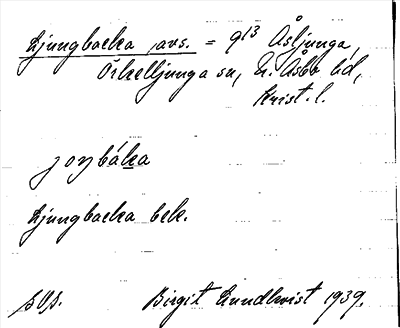 Ljungbacka avs. = 9¹³ Åsljunga,
Örkelljunga sn, N. Åsbo hd,
Krist. l.
joŋbáka
Ljungbacka bek.
Birgit Lundkvist 1939.